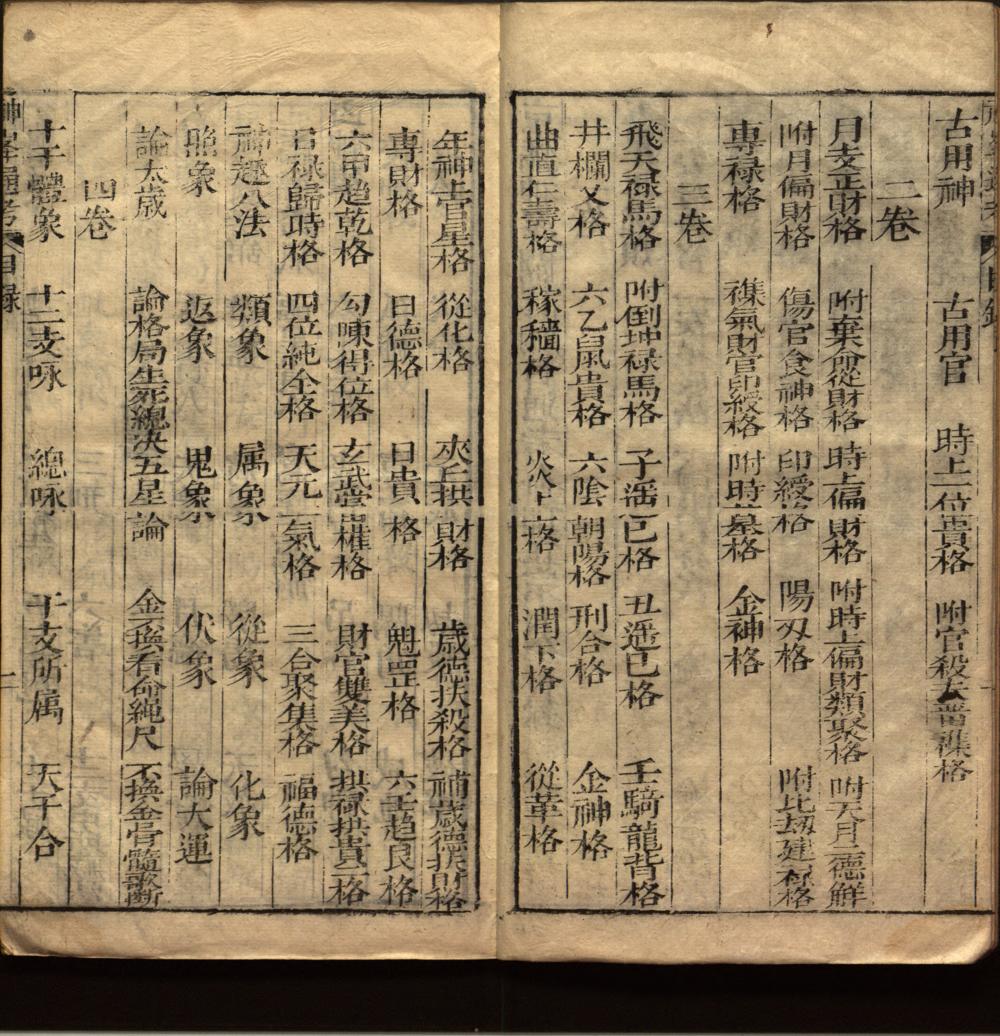 古用神 古用官 時上一位貴格 附官殺去畱襍格
二卷
月支正財格 附棄命從財格 時上偏財格 附時上偏財類聚格 附天月二德鮮
附月偏財格 傷官食神格 印綬格 陽刃格 附比刼建祿格
專祿格 襍氣財官印綬格 附時墓格 金神格
三卷
飛天祿馬格 附倒坤祿馬格 子遙巳格 丑遥巳格 壬騎龍背格
井欄叉格 六乙鼠貴格 六陰朝陽格 刑合格 金神格
曲直仁壽格 稼穡格 炎上格 潤下格 從革格
年神上官星格 從化格 夾丘拱財格 歲德扶殺格 補歲德扶財格
專財格 日德格 日貴格 魁罡格 六壬趨艮格
六甲趨乾格 勾陳得位格 玄武當權格 財官雙美格 拱禄拱貴二格
日禄歸時格 四位純全格 天元一氣格 三台聚集格 福德格
神趣八法 類象 属象 從象 化象
照象 返象 鬼象 伏象 論大運
論太歲 論格局生死總决五星論 金不換看命繩尺 不換金骨髓歌斷
四卷
十干體象 十二支咏 總咏 干支所属 天干合
神峯通考 目録 一